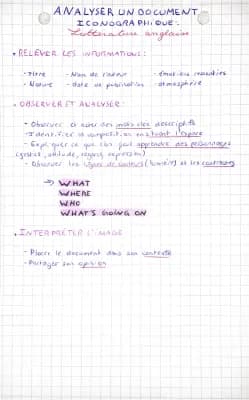 ANALYSER UN DOCUMENT
ICONOGRAPHIQUE.
Littérature anglaise
• RELEVER LES INFORMATIONS :
- Titre - Nom de l'auteur - Emotions ressenties
- Nature - Date de publication - atmosphère
• OBSERVER ET ANALYSER :
- Observer et noter des mots clés descriptifs
- Identifier la composition en l'espace
- Expliquer ce que l'on peut apprendre des personnages
(gestuel, attitude, regard, expression)
- Observer les types de couleurs (lumière) et les contrastes
→ WHAT
WHERE
WHO
WHAT'S GOING ON
• INTERPRÉTER L'IMAGE
- Placer le document dans son contexte
- Partager son opinion